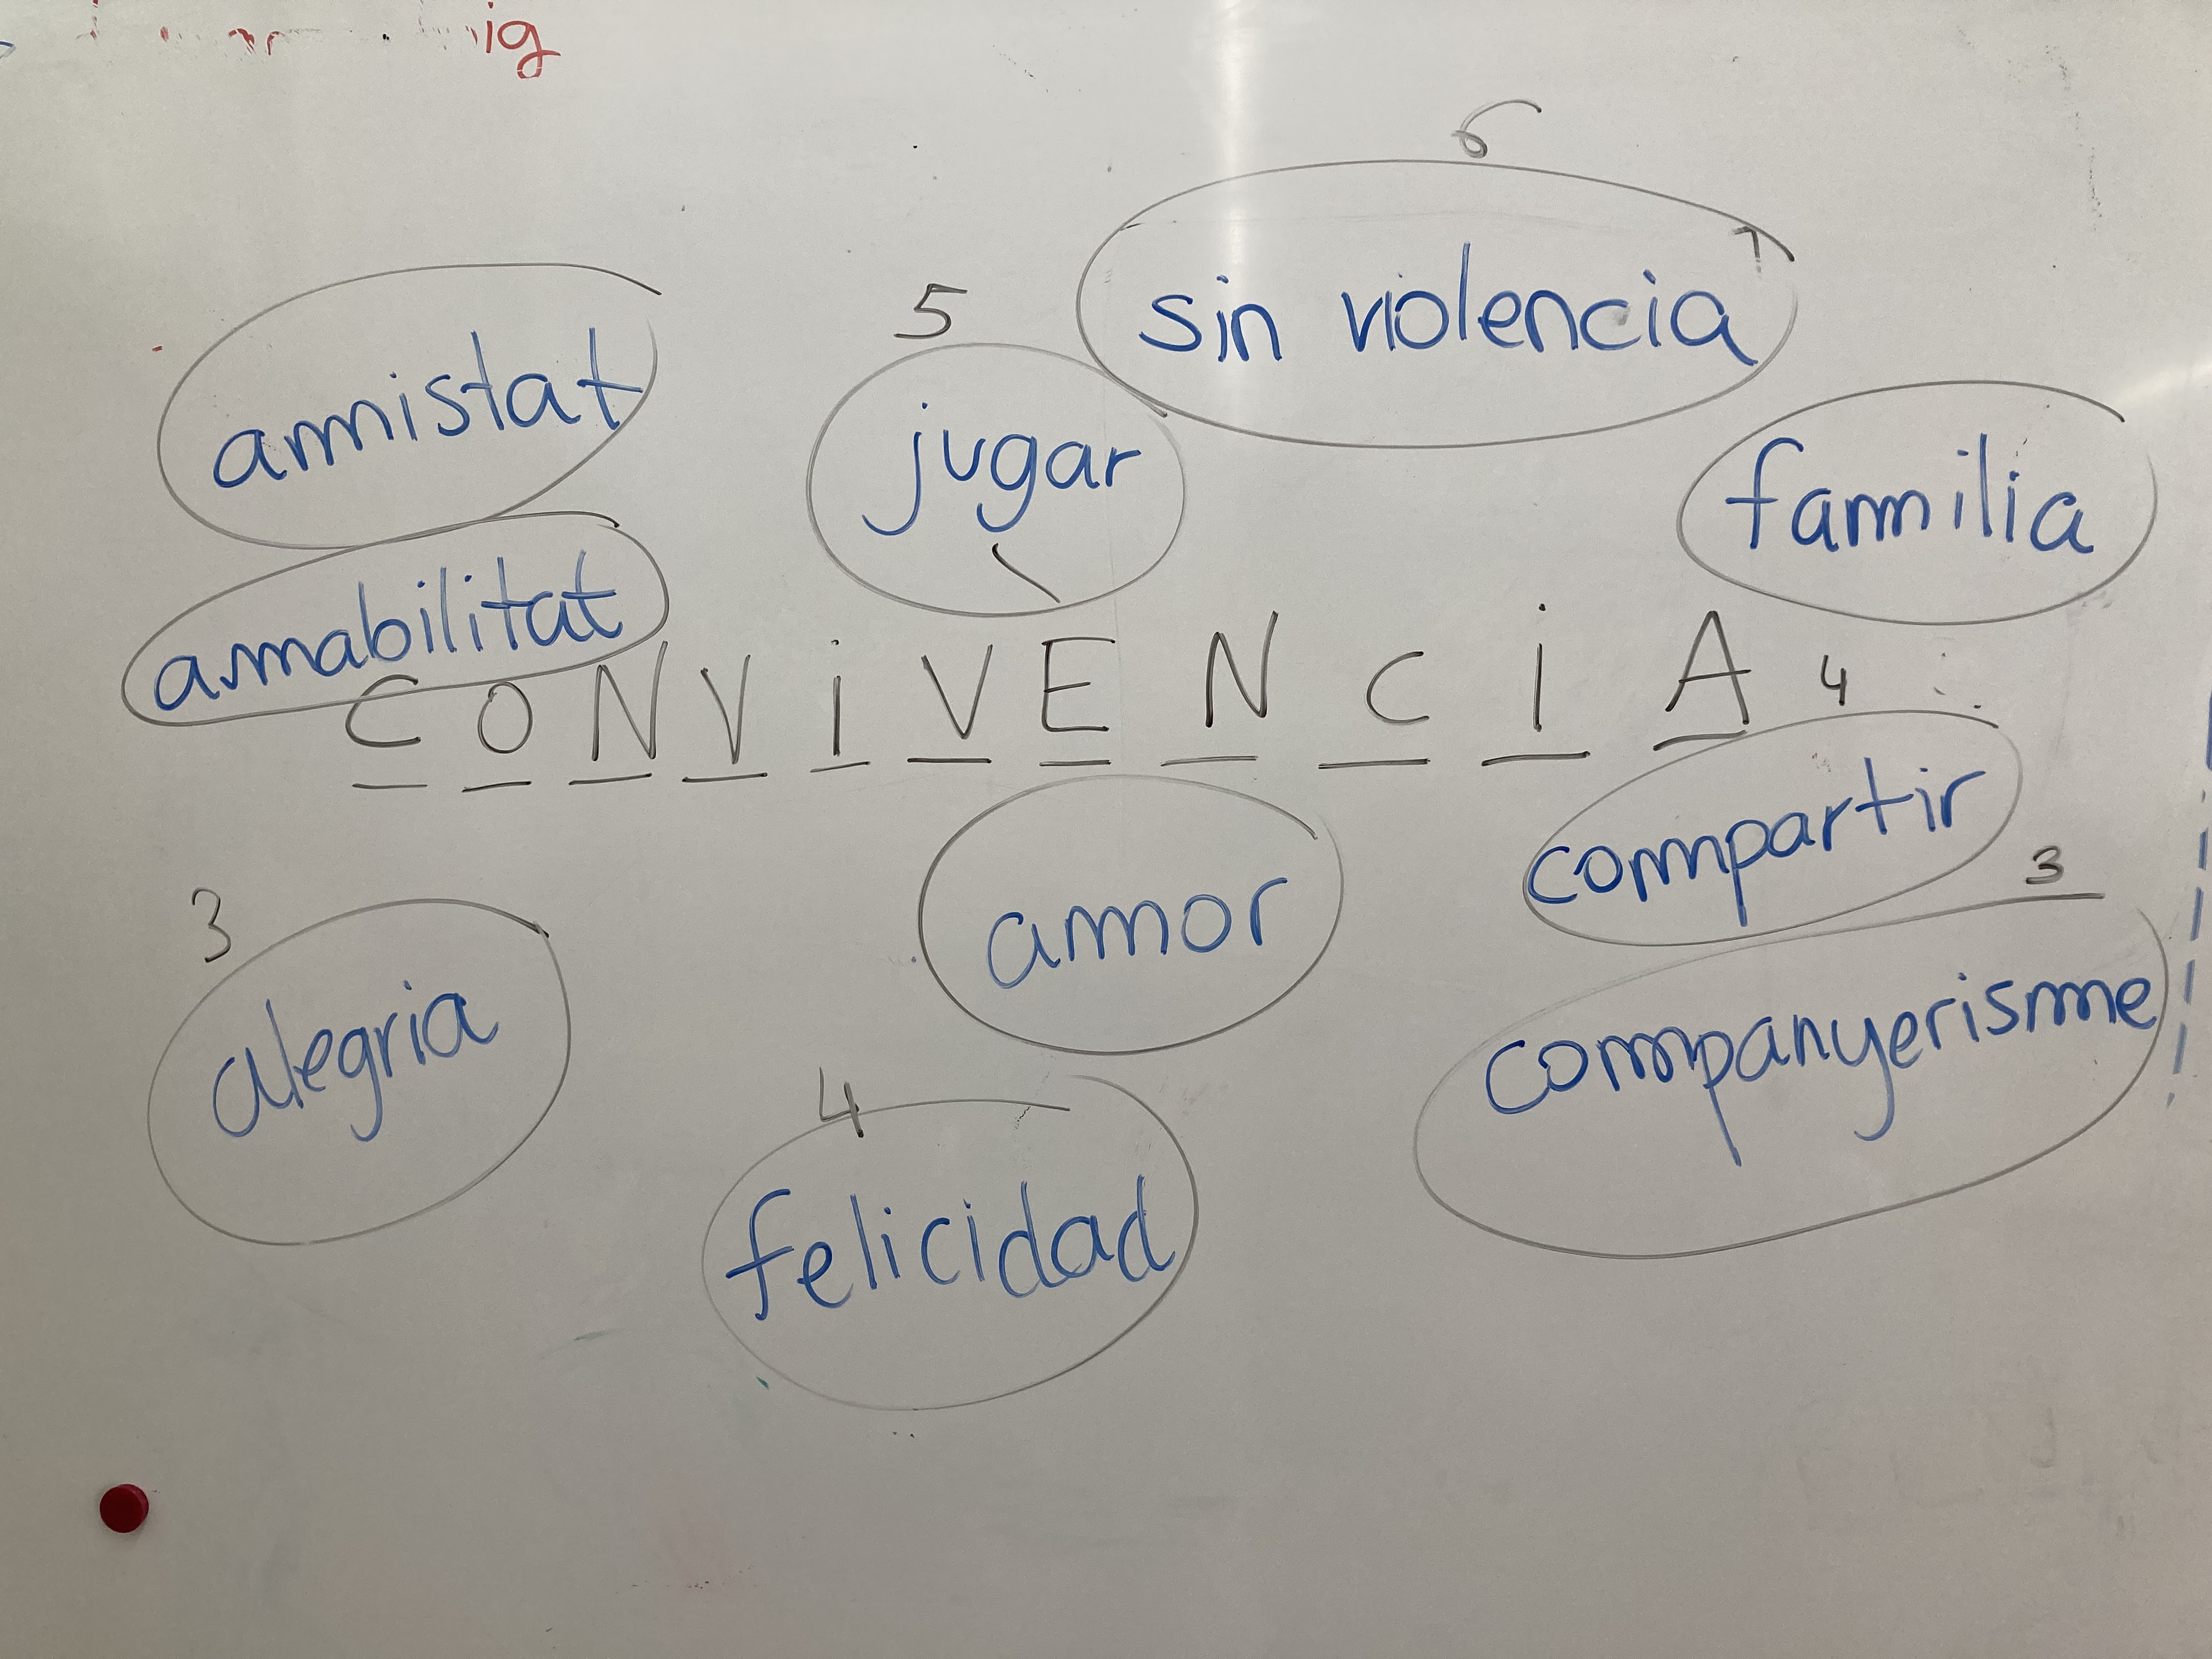 ig
6
sin violencia
5
jugar
amistat
familia
amabilitat
CONViVENCiA
4
compartir
3
companyerisme
amor
3
alegria
4
felicidad